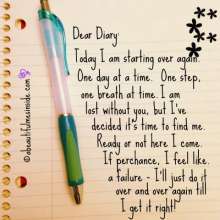 Dear Diary
Today I am starting over again.
One day at a time. One step,
one breath at time. I am
lost without you, but I've
decided it's time to find me.
Ready or not here I come.
If perchance, I feel like
a failure - I'll just do it
over and over again till
I get it right!
©abeautifulmessinside.com